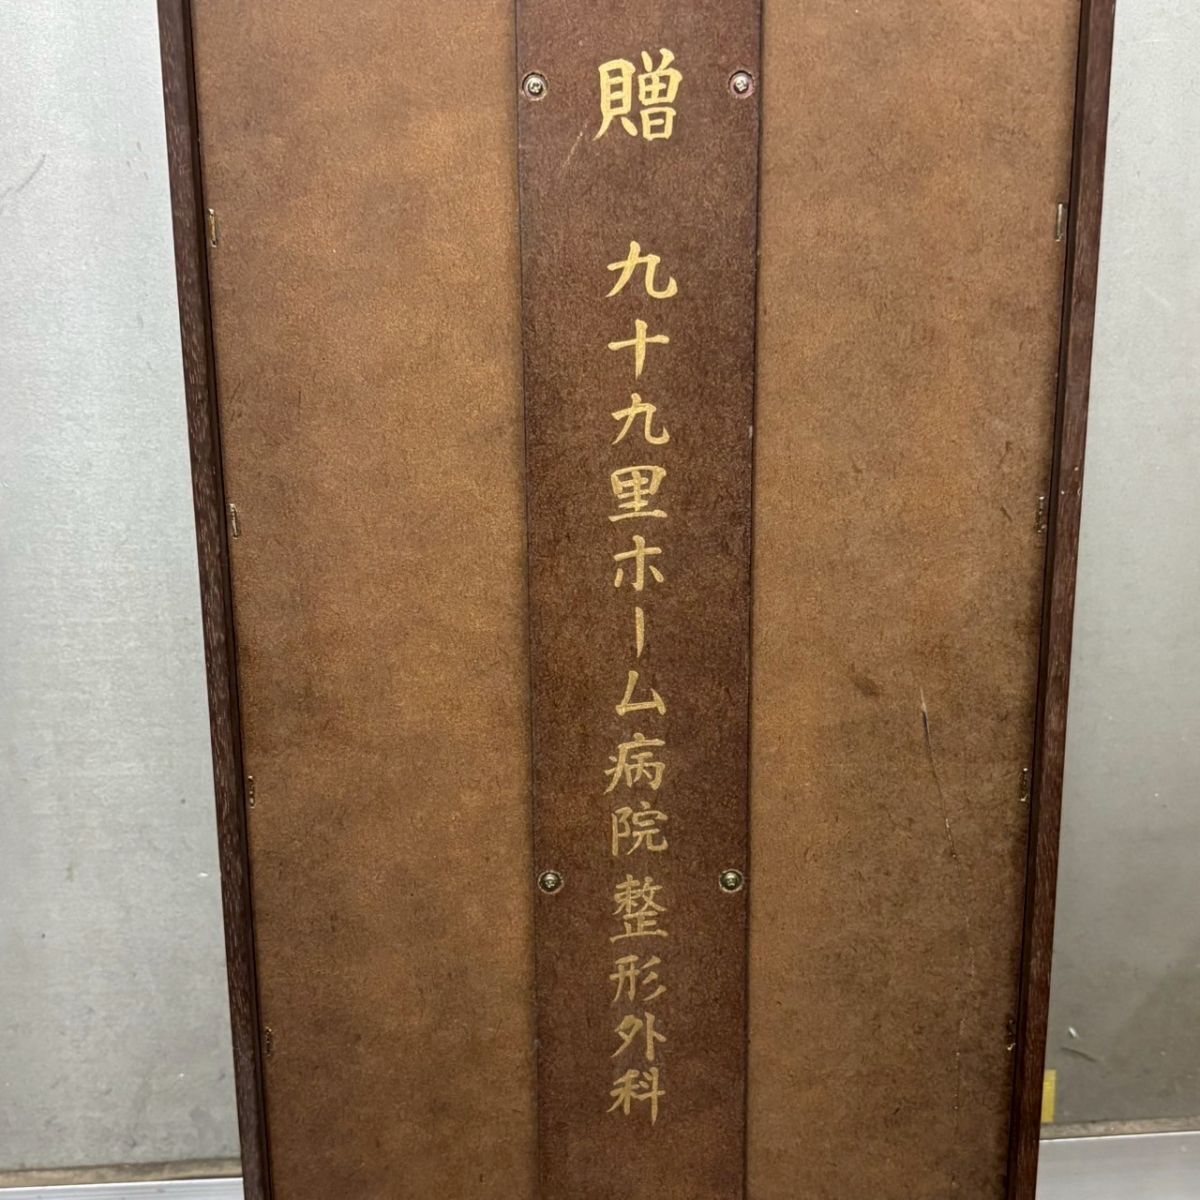 贈 九十九里ホーム病院整形外科